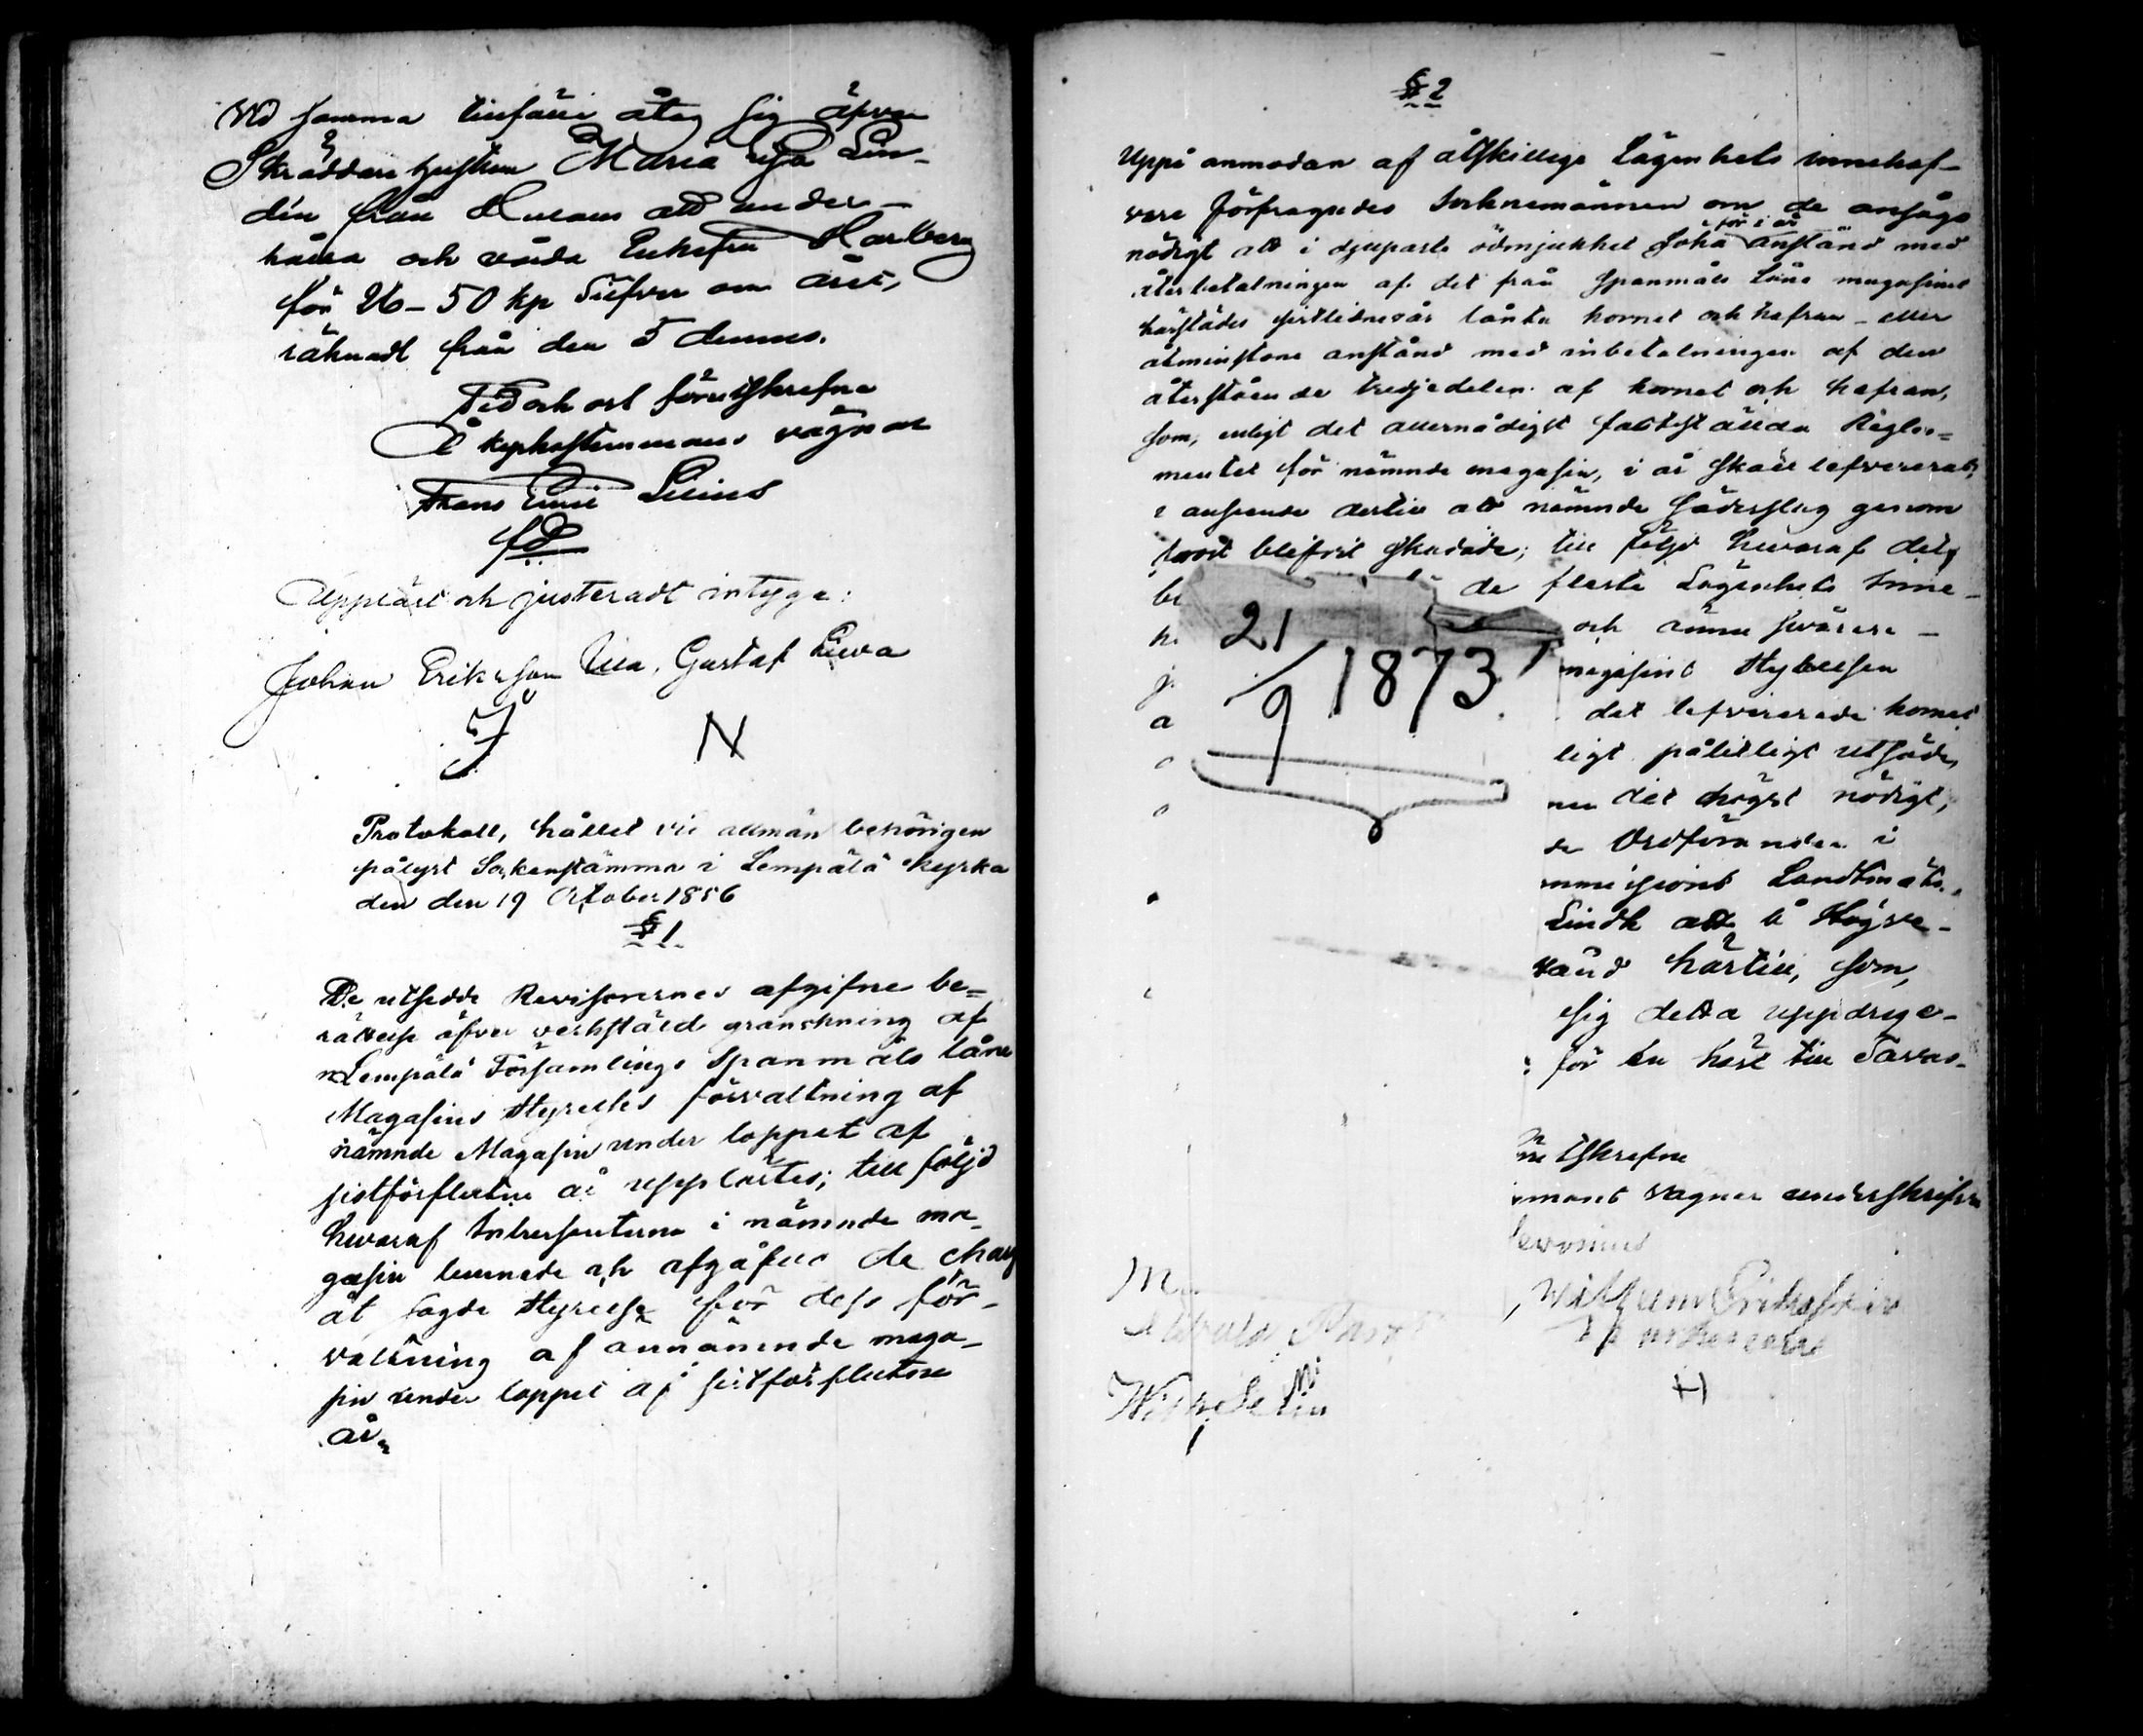 Vid samma tillfälle åtog sig äfven
Skräddare hustrun Maria Lisa Lin-
din från Kulans att under-
hålla och vårda Enkefru Harlberg
för 26-50 kp Silfver om året,
räknadt från den 5 dennes.
Tid och ort förutskrefne
å kyrkostämmans vägnar
Frans Emil
Uppläst och justeradt intyga:
Johan Eriksson Ulla, Gustaf
N
Protokoll, hållet vid allmän behörigen
pålyst Sockenstämma i Lempälä kyrka
den den 19 October 1856
§ 1.
De utsedde Revisorernes afgifne be=
rättelse öfver verkställd granskning af
Lempälä Församlings Spanmåls låne
Magasins Styrelses förvaltning af
nämnde Magasin under loppet af
sistförflutne år upplästes; till följd
hvaraf Intressenterne i nämnde ma-
gasin lemnade och afgåfvo de charg
åt sagde Styrelse för dess för-
valtning af annämnde maga-
sin under loppet af sistförflutne
år.
§ 2
Uppå anmodan af åtskillige Lägenhets innehaf-
vare förfrågades Socknemännen om de ansågo
för i år
nödigt att i djupaste ödmjukhet söka anstånd med
återbetalningen af det från Spanmåls Låne magasinet
härstädes sistlidne år lånta kornet och hafran - eller
åtminstone anstånd med inbetalningen af den
återstående tredjedelen af kornet och hafran,
som, enligt det allernådigst fastställda Regle=
mentet för nämnde magasin, i år skall lefvereras,
i anseende dertill att nämnde sädesslag genom
frost blifvit skadade; till följd hvaraf det
be
de fleste Lägenhets Inne-
och ännu svårare -
magasins Styrelsen
det lefvererade kornet
ligt pålitligt utsäde,
nu det högst nödigt,
de Ordföranden i
mmissions Landtmät.
Lindh att å Högve-
härtill, som,
sig detta uppdrag e-
för en hvar till Tavas-
21/9 1873
utskrefne
mans vägnar underskrifver
Wilhelm Eriksson
H